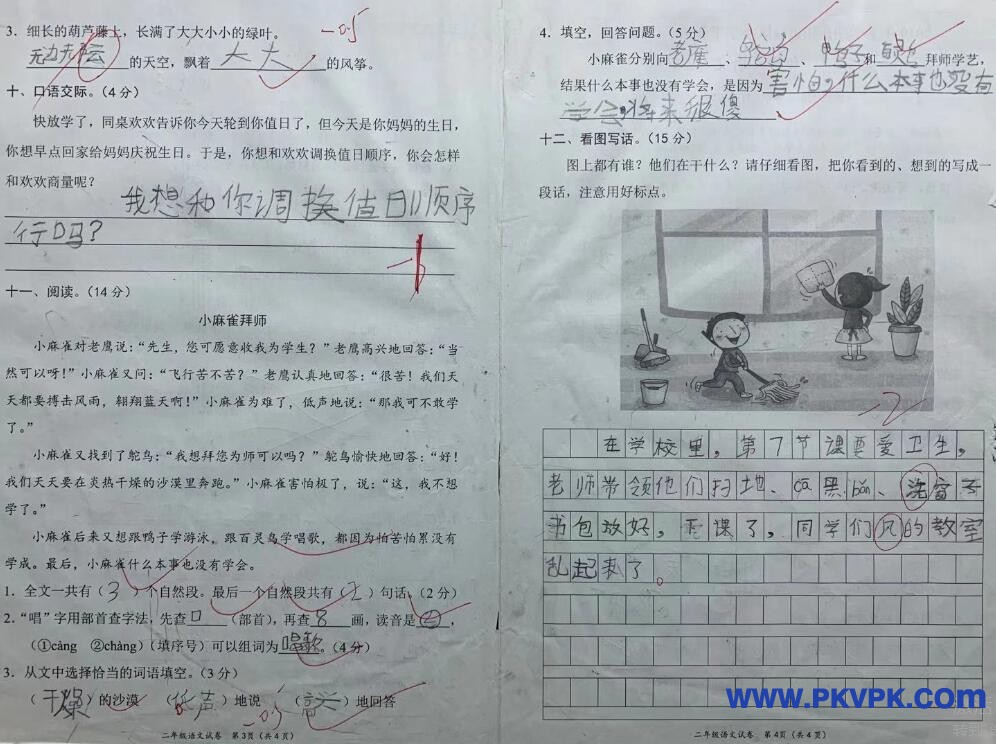 3. 细长的葫芦藤上，长满了大大小小的绿叶。
的天空，飘着 大大 的风筝。
十、口语交际。（4分）
快放学了，同桌欢欢告诉你今天轮到你值日了，但今天是你妈妈的生日，
你想早点回家给妈妈庆祝生日。于是，你想和欢欢调换值日顺序，你会怎样
和欢欢商量呢？
我想和你调换值日顺序
行吗？
十一、阅读。（14分）
小麻雀拜师
小麻雀对老鹰说：“先生，您可愿意收我为学生？”老鹰高兴地回答：“当
然可以呀！”小麻雀又问：“飞行苦不苦？”老鹰认真地回答：“很苦！我们天
天都要搏击风雨，翱翔蓝天啊！”小麻雀为难了，低声地说：“那我可不敢学
了。”
小麻雀又找到了鸵鸟：“我想拜您为师可以吗？”鸵鸟愉快地回答：“好！
我们天天要在炎热干燥的沙漠里奔跑。”小麻雀害怕极了，说：“这，我不想
学了。”
小麻雀后来又想跟鸭子学游泳，跟百灵鸟学唱歌，都因为怕苦怕累没有
学成。最后，小麻雀什么本事也没有学会。
1. 全文一共有（3）个自然段。最后一个自然段共有（2）句话。（2分）
2. “唱”字用部首查字法，先查 口 （部首），再查 8 画，读音是 ② ，
（①càng ②chàng）（填序号）可以组词为 唱歌 。（4分）
3. 从文中选择恰当的词语填空。（3分）
（干燥）的沙漠 （低声）地说 （高兴）地回答
二年级语文试卷 第3页（共4页）
4. 填空，回答问题。（5分）
小麻雀分别向 老鹰 、 、 和 拜师学艺，
结果什么本事也没有学会，是因为 害怕，什么本事也没有
学会，将来很傻
十二、看图写话。（15分）
图上都有谁？他们在干什么？请仔细看图，把你看到的、想到的写成一
段话，注意用好标点。
-2
在学校里，第7节课要爱卫生，
老师带领他们扫地、cā黑bǎn、洗窗子
书包放好，下课了，同学们风的教室
乱起来了。
二年级语文试卷 第4页（共4页）
WWW.PKVPK.com